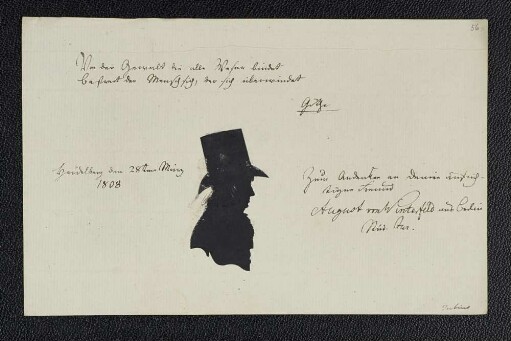 56.
Von der Gewalt die alle Wesen bindet
Befreit der Mensch sich, der sich überwindet
Göthe
Heidelberg den 28ten März
1808
Zum Andenken an Deinen aufrich-
tigen Freund
August von Winterfeld aus Berlin